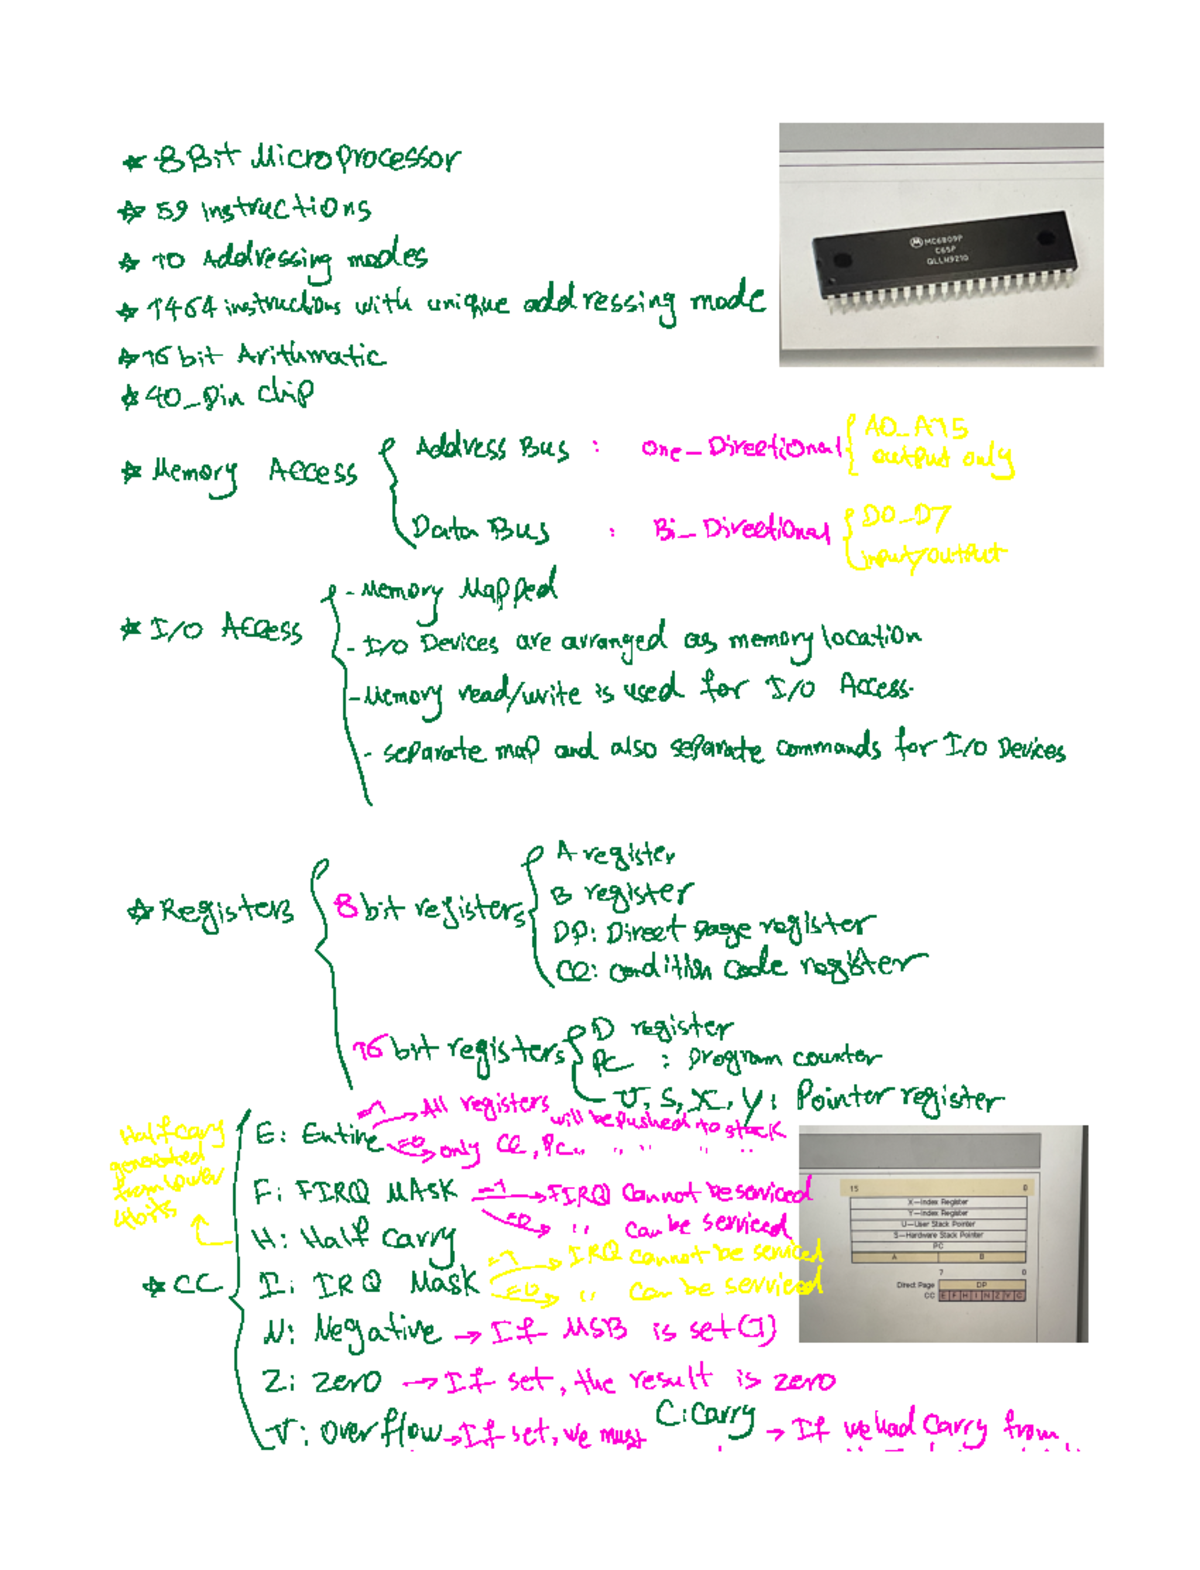 ☆ 8 Bit Microprocessor
☆ 59 instructions
☆ 10 Addressing modes
☆ 1464 instructions with unique addressing mode
☆ 16 bit Arithmatic
☆ 40_pin chip
MC6809P
C65P
QLLN9210
☆ Memory Access
Address Bus : One_Directional
A0_A15
output only
Data Bus : Bi_Directional
D0_D7
input/output
☆ I/O Access
- Memory Mapped
- I/O Devices are arranged as memory location
- Memory read/write is used for I/O Access.
- separate map and also separate commands for I/O Devices
☆ Registers
8 bit registers
A register
B register
DP: Direct page register
CC: condition code register
16 bit registers
D register
PC : program counter
U, S, X, Y: Pointer register
☆ CC
E: Entire
=1 → All registers will be pushed to stack
=0 → only CC, PC " " " " "
F: FIRQ MASK
=1 → FIRQ cannot be serviced
=0 → " can be serviced
H: Half carry
Half carry
generated
from lower
4bits
I: IRQ Mask
=1 → IRQ cannot be serviced
=0 → " can be serviced
N: Negative → If MSB is set(1)
Z: zero → If set, the result is zero
V: Overflow → If set, we must
C: Carry → If we had carry from
15 0
X-Index Register
Y-Index Register
U-User Stack Pointer
S-Hardware Stack Pointer
PC
A B
7 0
Direct Page DP
CC E F H I N Z V C